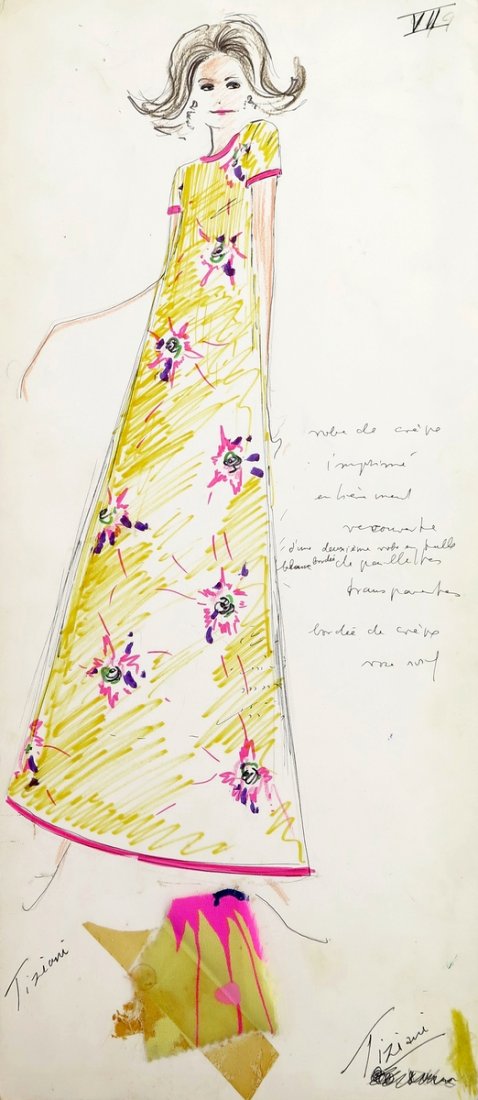 VII 9
robe de crêpe
imprimé
entièrement
recouverte
d'une deuxième robe en tulle
blanc brodée de paillettes
transparentes
bordée de crêpe
rose vif
Tiziani
Tiziani